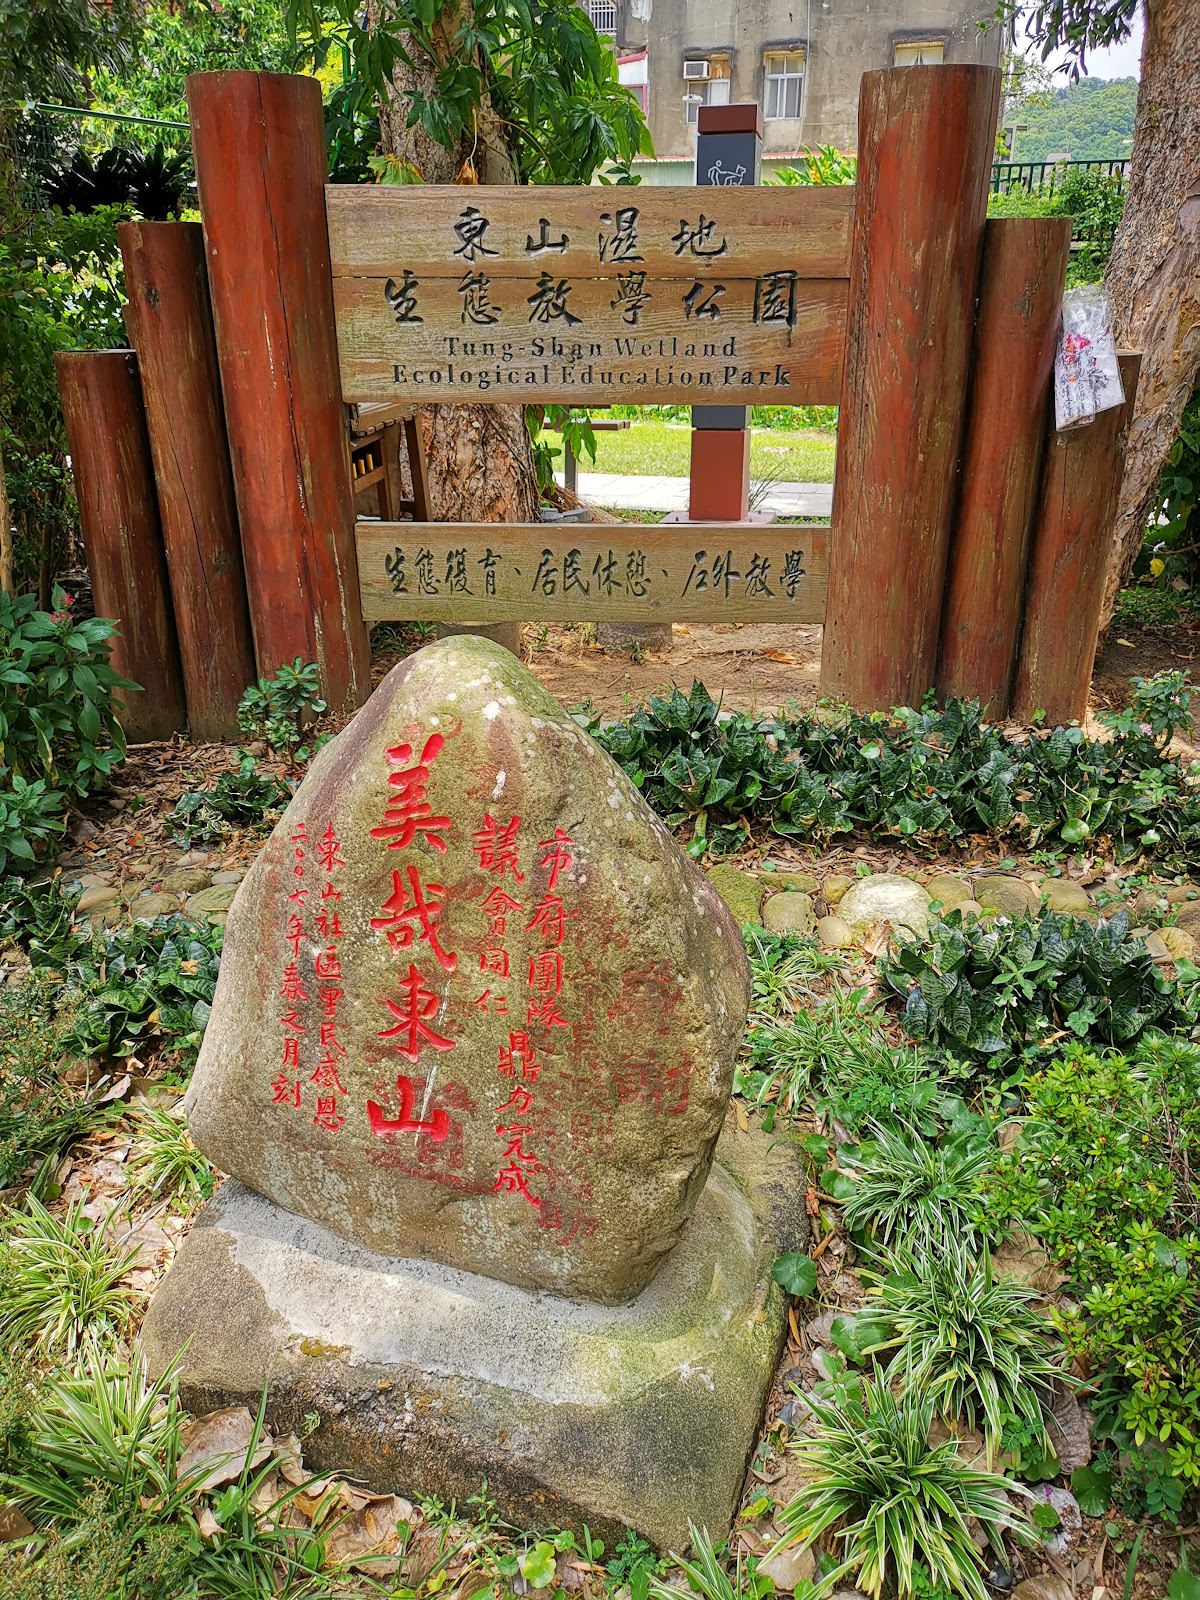 東山濕地
生態教學公園
Tung-Shan Wetland
Ecological Education Park
生態復育、居民休憩、戶外教學
市府團隊
議會同仁 鼎力完成
美哉東山
東山社區里民感恩
二〇〇七年春之月刻